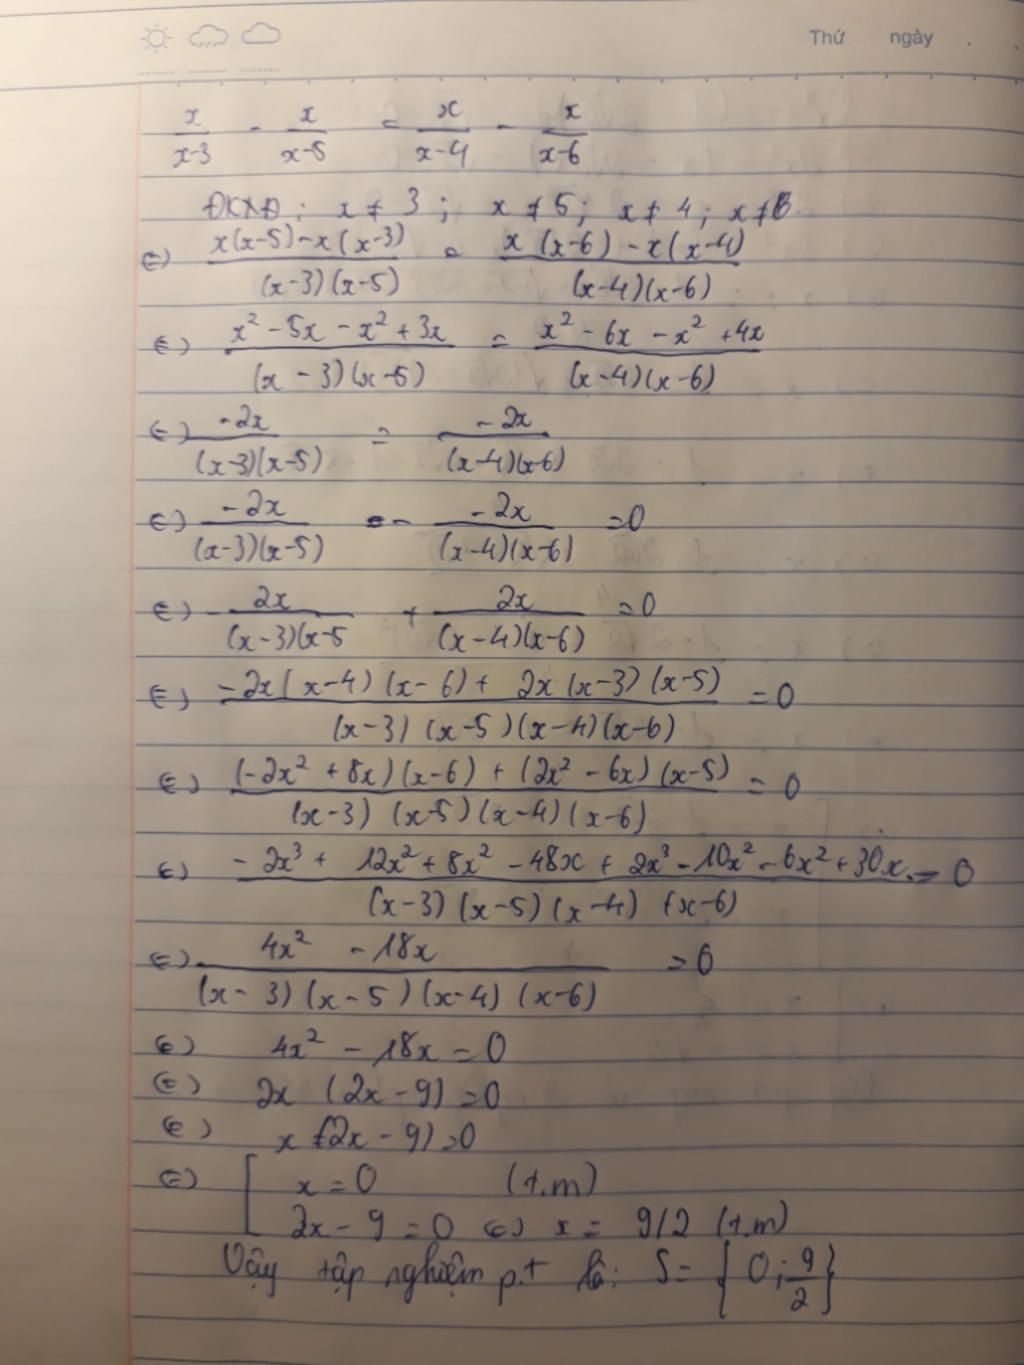 Thứ ngày . .
x/(x-3) - x/(x-5) = x/(x-4) - x/(x-6)
ĐKXĐ: x ≠ 3 ; x ≠ 5 ; x ≠ 4 ; x ≠ 6.
⇔) (x(x-5) - x(x-3))/((x-3)(x-5)) = (x(x-6) - x(x-4))/((x-4)(x-6))
⇔) (x² - 5x - x² + 3x)/((x-3)(x-5)) = (x² - 6x - x² + 4x)/((x-4)(x-6))
⇔) -2x/((x-3)(x-5)) = -2x/((x-4)(x-6))
⇔) -2x/((x-3)(x-5)) - -2x/((x-4)(x-6)) = 0
⇔) - 2x/((x-3)(x-5 + 2x/((x-4)(x-6)) = 0
⇔) (-2x(x-4)(x-6) + 2x(x-3)(x-5))/((x-3)(x-5)(x-4)(x-6)) = 0
⇔) ((-2x² + 8x)(x-6) + (2x² - 6x)(x-5))/((x-3)(x-5)(x-4)(x-6)) = 0
⇔) (-2x³ + 12x² + 8x² - 48x + 2x³ - 10x² - 6x² + 30x)/((x-3)(x-5)(x-4)(x-6)) = 0
⇔) (4x² - 18x)/((x-3)(x-5)(x-4)(x-6)) = 0
⇔) 4x² - 18x = 0
⇔) 2x (2x - 9) = 0
⇔) x (2x - 9) = 0
⇔) [ x = 0 (t.m)
2x - 9 = 0 ⇔) x = 9/2 (t.m)
Vậy tập nghiệm p.t là: S = {0; 9/2}